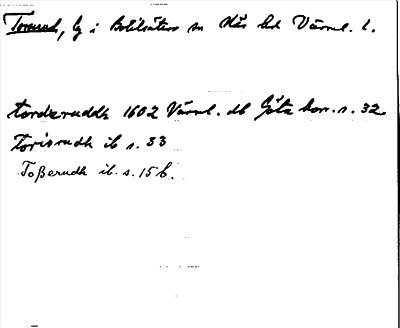 Torserud, by i Botilsäters sn Näs hd Värml. l.
torderuddh 1602 Värml. db Göta hovr. s. 32
Torisrudh ib s. 33
Toßerudh ib. s. 156.